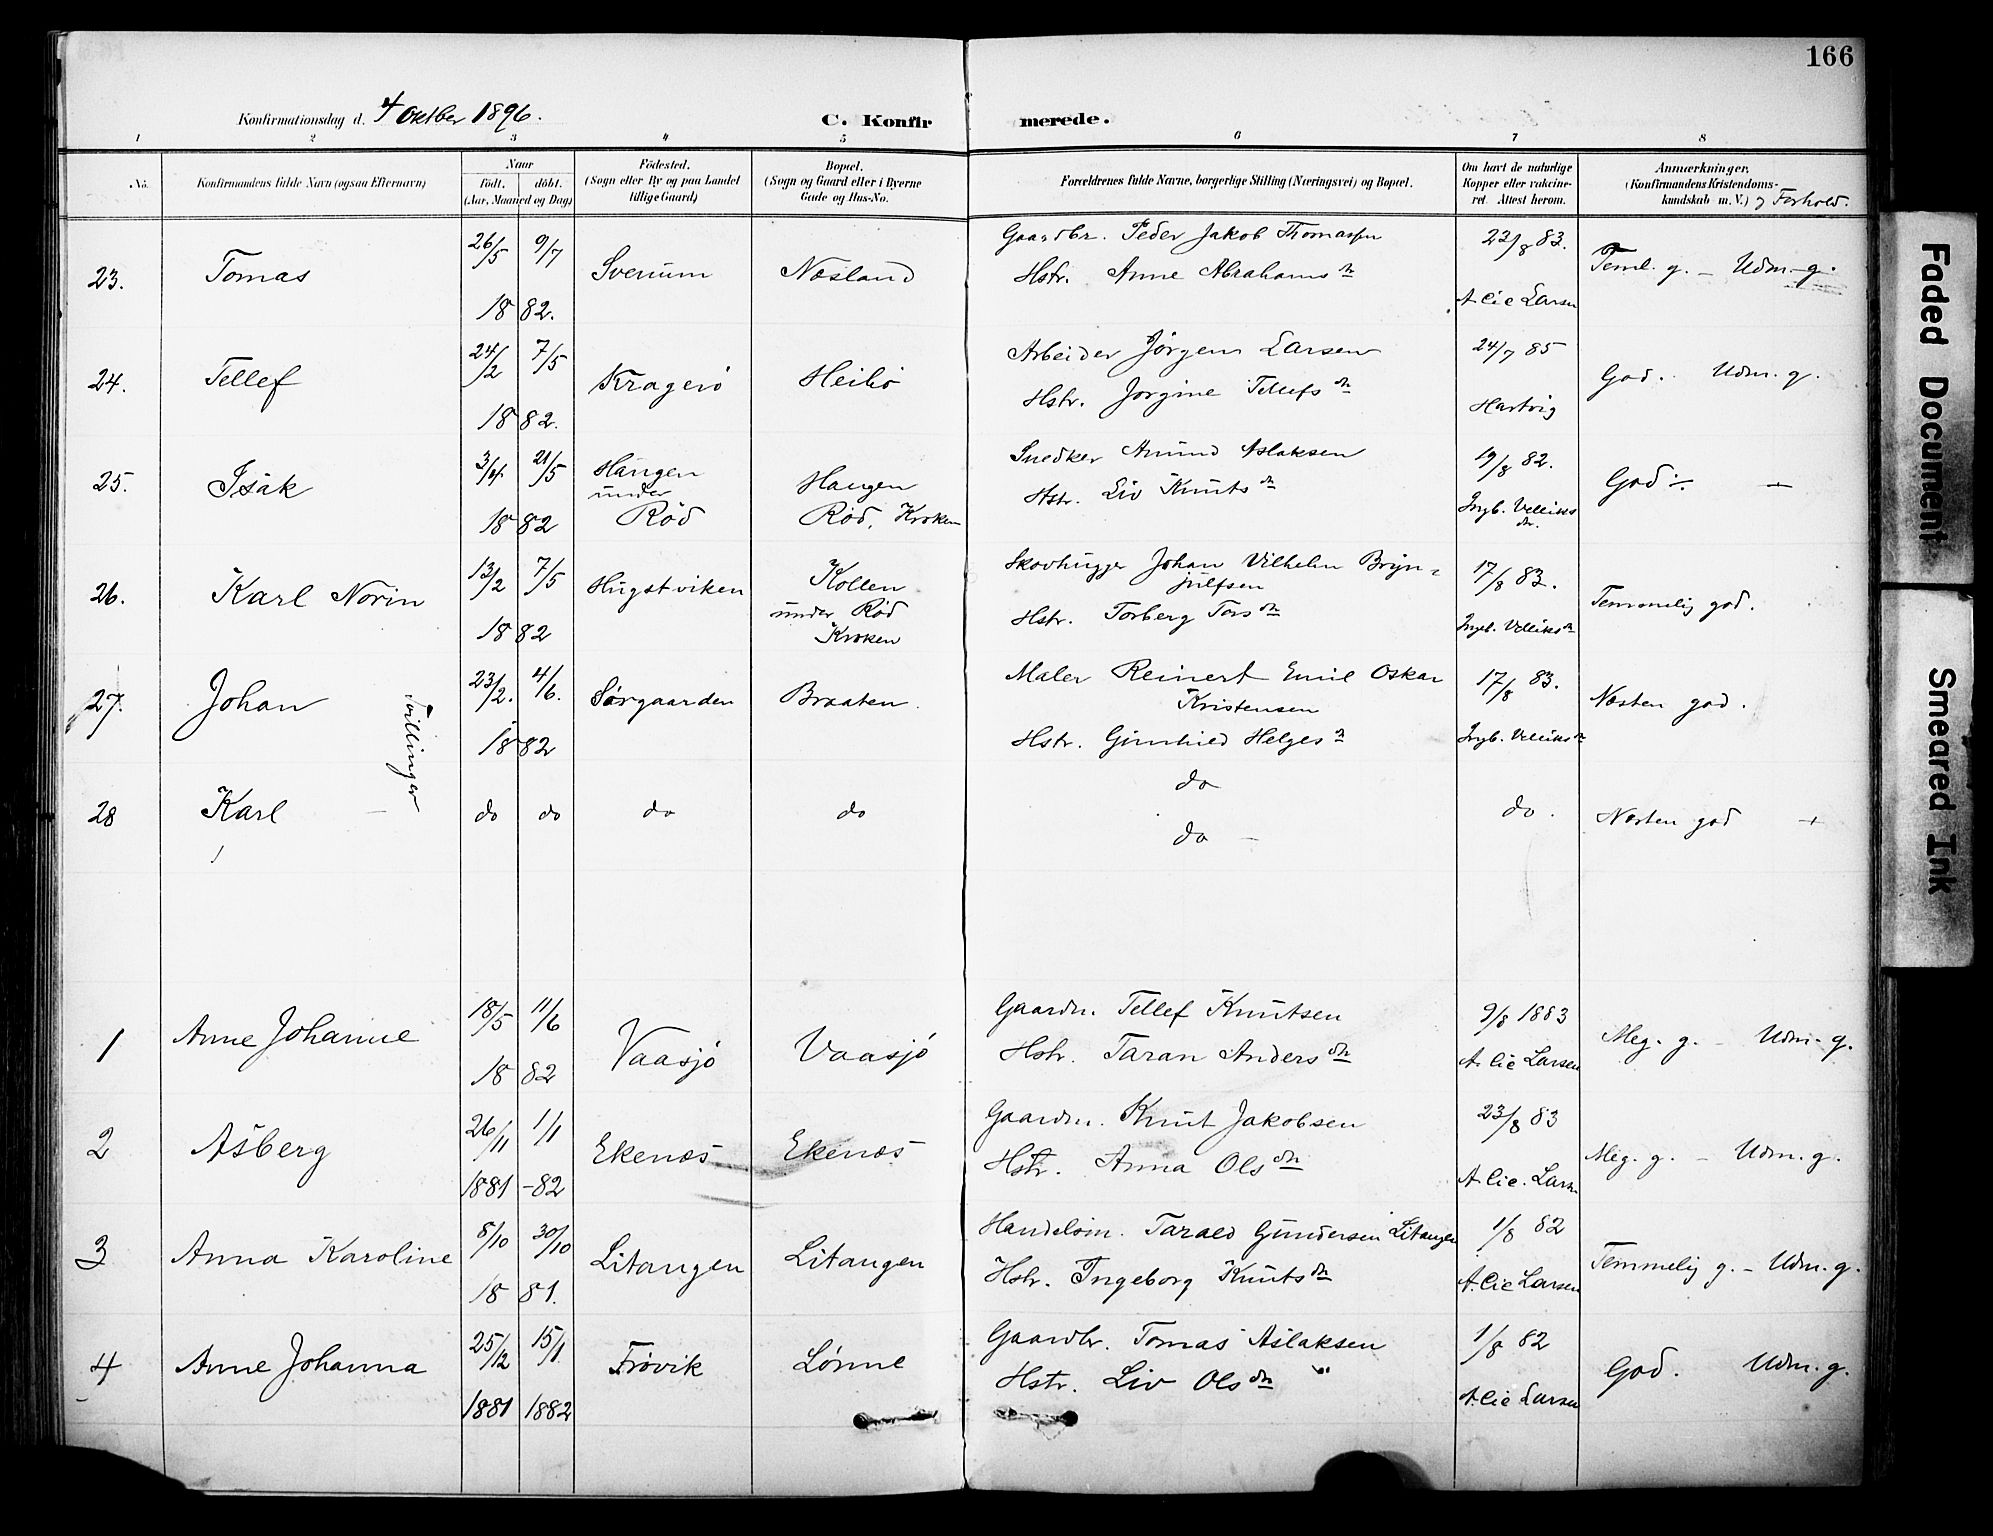 166
Konfirmationsdag d. 4 Oktber 1896.
C. Konfirmerede.
1 2 3 4 5 6 7 8
No.
Konfirmandens fulde Navn (ogsaa Efternavn)
Naar
født. døbt.
(Aar, Maaned og Dag)
Födested.
(Sogn eller By og paa Landet
tillige Gaard)
Bopæl.
(Sogn og Gaard eller i Byerne
Gade og Hus-No.
Forældrenes fulde Navne, borgerlige Stilling (Næringsvei) og Bopæl.
Om havt de naturlige
Kopper eller vakcine-
ret. Attest herom.
Anmærkninger,
(Konfirmandens Kristendoms-
kundskab m. V.) og Forhold.
23. Tomas 26/5 9/7 1882. Svenum Næsland
Gaardbr. Peder Jakob Thomassen
Hstr. Anne Abrahamsdn
23/8 83.
A. Cie Larsen
Teml. g. – Udm. g.
24. Tellef 24/2 7/5 1882. Kragerö Heibö
Arbeider Jörgen Larsen
Hstr. Jorgine Tellefsdn
24/7 85
Hartvig
God. Udm. g.
25. Isak 21/5 1882
Haugen
under
Röd
Haugen
Röd, Kroken
Snedker Amund Aslaksen
Hstr. Liv Knutsdn
19/8 82.
Ingb. Velliks
dn.
God ÷ –
26. Karl Norin 13/2 7/5 1882 Hugstviken
Kollen
under Röd
Kroken
Skovhugger Johan Vilhelm Bryn-
julfsen
Hstr. Torberg Torsdn
17/8 83.
Ingb. Velliksdn
Temmelig god.
27. Johan 23/2. 4/6. 1882 Sørgaarden Braaten.
Tvillinger
Maler Reinert Emil Oskar
Kristensen
Hstr. Gunhild Helgesdn
17/8 83.
Ingb. Velliksdn
Næsten god.
28 Karl – do do do do
do
do –
do.
Næsten god +
1 Anne Johanne 18/5 11/6 1882 Vaasjö Vaasjö
Gaardm. Tellef Knutsen
Hstr. Taran Andersdn
9/8 1883
A. Cie Larsen
Meg. g. – Udm. g.
2 Åsberg 26/11 1/1 1881 –82 Ekenæs Ekenæs
Gaardm. Knut Jakobsen
Hstr. Anna Olsdn
23/8 83
A. Cie. Larsn
Meg. g. – Udm. g.
3 Anna Karoline 8/10 30/10 1881. Litangen Litangen
Handelsm. Tarald Gundersen Litangen
Hstr. Ingeborg Knutsdn
1/8 82
A. Cie Larsen
Temmelig g. – Udm. g.
4 Anne Johanna 25/12 15/1 1881 1882 Frøvik Lønne
Gaardbr. Tomas Aslaksen
Hstr. Liv Olsdn "
1/8 82
A. Cie Larsen
God. Udm. g.
Faded Document
Smeared Ink